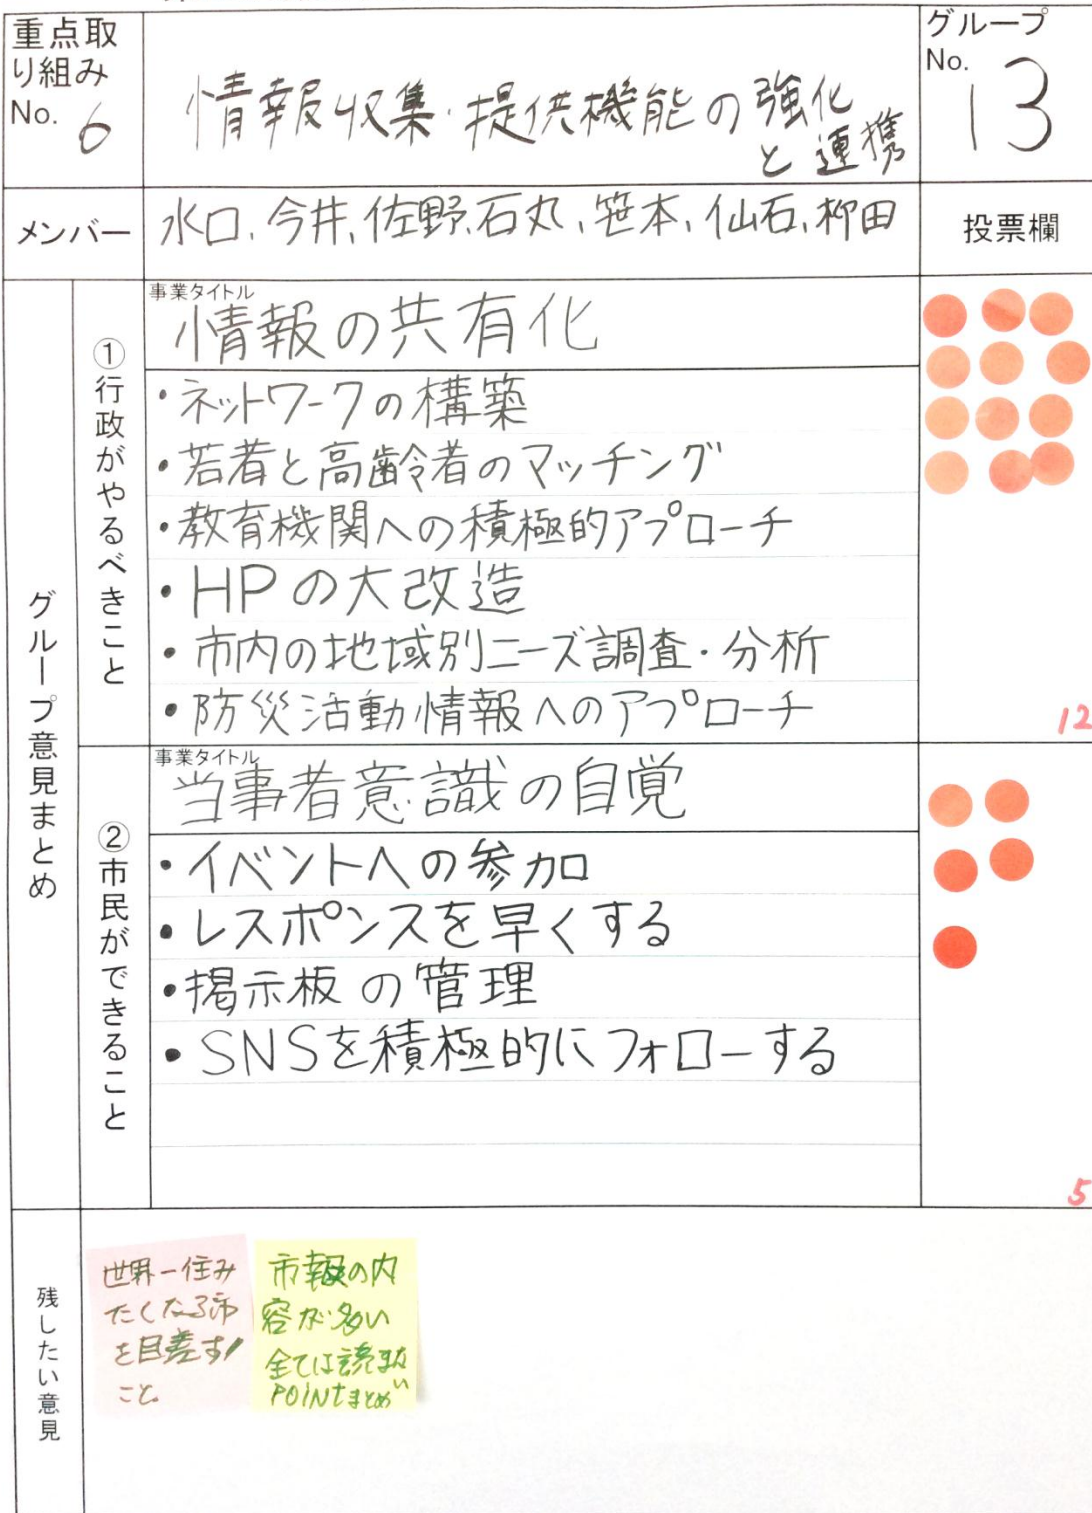 重点取
り組み
No. 6
情報収集・提供機能の強化
と連携
グループ
No.
13
メンバー
水口、今井、佐野、石丸、笹本、仙石、柳田
投票欄
グループ意見まとめ
①行政がやるべきこと
事業タイトル
情報の共有化
・ネットワークの構築
・若者と高齢者のマッチング
・教育機関への積極的アプローチ
・HPの大改造
・市内の地域別ニーズ調査・分析
・防災活動情報へのアプローチ
12
②市民ができること
事業タイトル
当事者意識の自覚
・イベントへの参加
・レスポンスを早くする
・掲示板の管理
・SNSを積極的にフォローする
5
残したい意見
世界一住み
たくなる市
を目差す!
こと。
市報の内
容が多い
全ては読まな
い
POINtまとめ